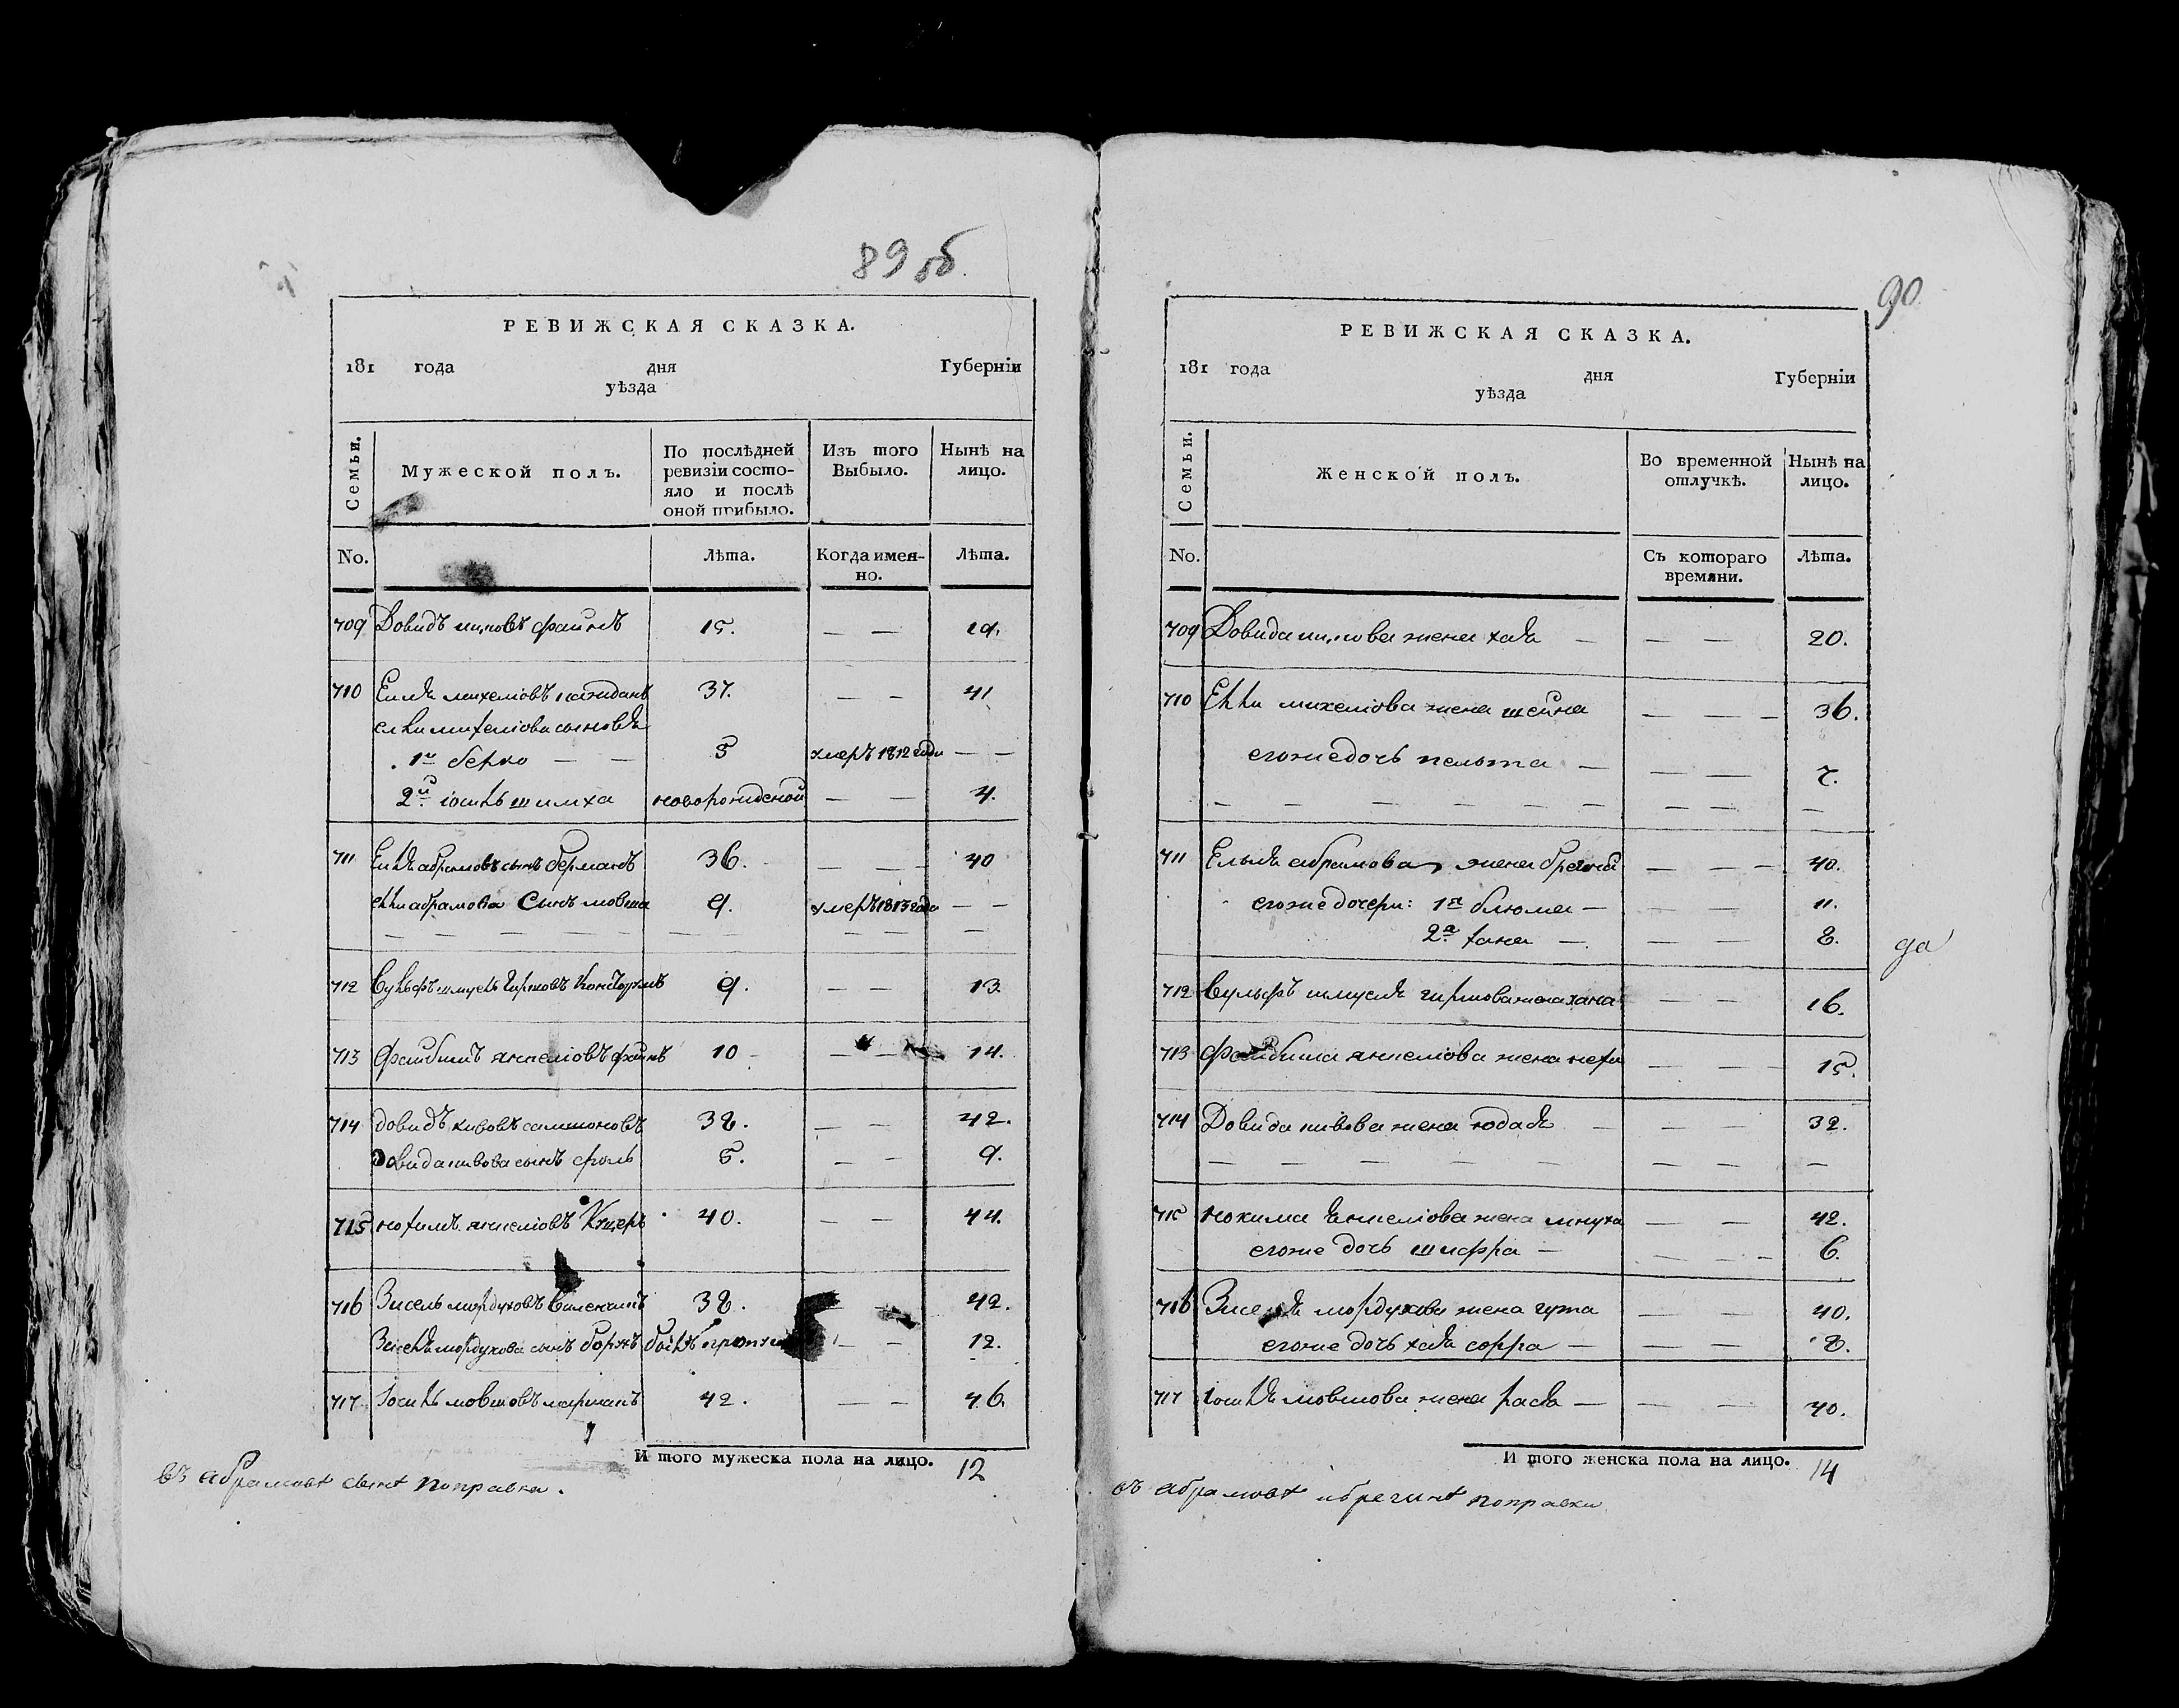 89 об.
РЕВИЖСКАЯ СКАЗКА.
181 года дня Губернїи
уѣзда
Семьи. Мужеской полъ. По послѣдней ревизїи состо-яло и послѣ оной прибыло. Изъ того Выбыло. Нынѣ на лицо.
No. Лѣта. Когда имен-но. Лѣта.
709 Довидъ 15. — — 19.
710 михелiовъ 37. — — 41
михелiова сыновья
1й берко — — 5 умеръ 1812 года — —
2й iосель шимха новорожденой — — 4.
711 абрамовъ сынъ берманъ 36. — — 40
абрамова Сынъ мовша 9. умеръ 1813 года — —
— — — — — — — — — —
712 Вульфъ шмуель гиршовъ 9. — — 13.
713 Файбишъ янкелiовъ файнъ 10 — — 14.
714 Довидъ кивовъ самсоновъ 38. — — 42.
Довида кивова сынъ сроль 5. — — 9.
715 нохимъ янкелiовъ 40. — — 44.
716 Зисель мордуховъ виленчикъ 38. — — 42.
Зисель мордухова сынъ — — 12.
717 Iосель мовшовъ 42. — — 46.
И того мужеска пола на лицо. 12
въ абрамовѣ сынѣ поправка.
90
РЕВИЖСКАЯ СКАЗКА.
181 года дня Губернїи
уѣзда
Семьи. Женской полъ. Во временной отлучкѣ. Нынѣ на лицо.
No. Съ котораго времяни. Лѣта.
709 Довида жена хая — — — 20.
710 михелiова жена шейна — — — 36.
егоже дочь — — — 7.
— — — — — — — — —
711 абрамова жена — — — 40.
егоже дочери: 1я блюма — — — 11.
2я хана — — — 8.
да
712 Вульфъ шмуеля гиршова жена хана — — 16.
713 Файбиша янкелiова жена неха — — — 15.
714 Довида кивова жена юдася — — — 32.
— — — — — — — —
715 нохима янкелiова жена мнуха — — 42.
егоже дочь шифра — — — 6.
716 Зиселя мордухова жена гута — — 40.
егоже дочь хая сорра — — — 8.
717 Iоселя мовшова жена рася — — — 40.
И того женска пола на лицо. 14
въ абрамовѣ и брегинѣ поправки